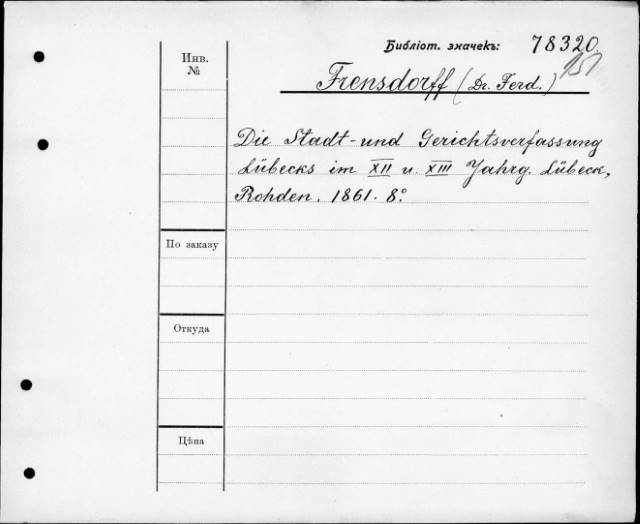 Библіот. значекъ: 78320.
151
Инв.
№
Frensdorff (Dr. Ferd.)
Die Stadt- und Gerichtsverfassung
Lübecks im XII u. XIII Jahrg. Lübeck,
Rohden. 1861. 8º
По заказу
Откуда
Цѣна